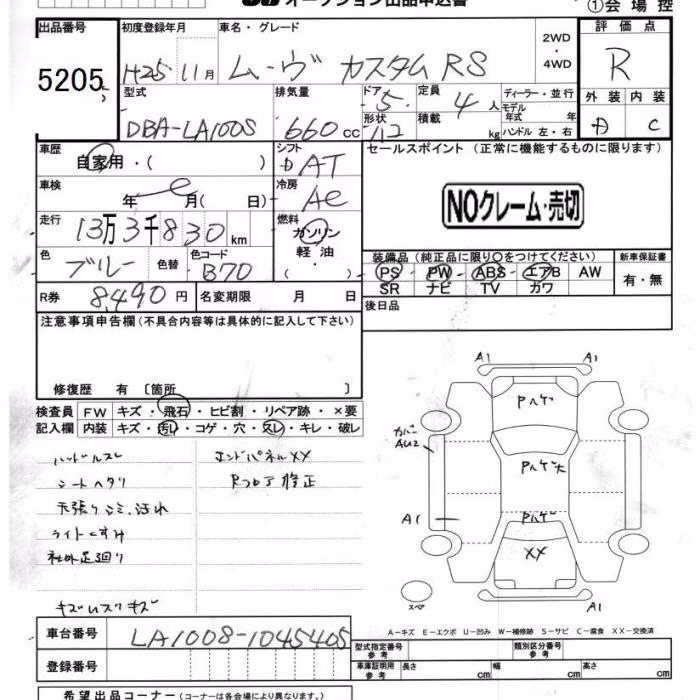 オークション出品申込書
①会場控
出品番号 初度登録年月 車名・グレード 2WD・4WD 評価点
5205 H25.11月 ムーヴ カスタムRS R
外装 内装
D C
型式 排気量 ドア 定員 ディーラー・並行
DBA-LA100S 660cc 5 4人 モデル年式 年
形状 積載
kg ハンドル 左・右
車歴 シフト セールスポイント (正常に機能するものに限ります)
自家用・( ) DAT
NOクレーム・売切
車検 冷房
年 月(日) AC
走行 燃料
13万3千830km ガソリン・軽油・( )
装備品 (純正品に限り○をつけてください) 新車保証書
色 色替 色コード
ブルー B70
PS・PW・ABS・エアB AW 有・無
SR ナビ TV カワ
R券 8,490円 名変期限 月 日
後日品
注意事項申告欄 (不具合内容等は具体的に記入して下さい)
修復歴 有〔箇所 〕
検査員 FW キズ・飛石・ヒビ割・リペア跡・×要
記入欄 内装 キズ・汚れ・コゲ・穴・スレ・キレ・破レ
ハンドルスレ エンドパネルXX
シートヘタリ Rフロア修正
天張りシミ.汚れ
ライトくすみ
社外足廻り
A1 A1
Pハゲ
カバー
AU2
Pハゲ大
A1 Pハゲ
XX
スペ A1
A－キズ E－エクボ U－凹み W－補修跡 S－サビ C－腐食 XX－交換済
車台番号 LA100S-1045405
型式指定番号 参考 類別区分番号 参考
登録番号 車庫証明用 参考 長さ cm 幅 cm 高さ cm
希望出品コーナー (コーナーは各会場により異なります。)